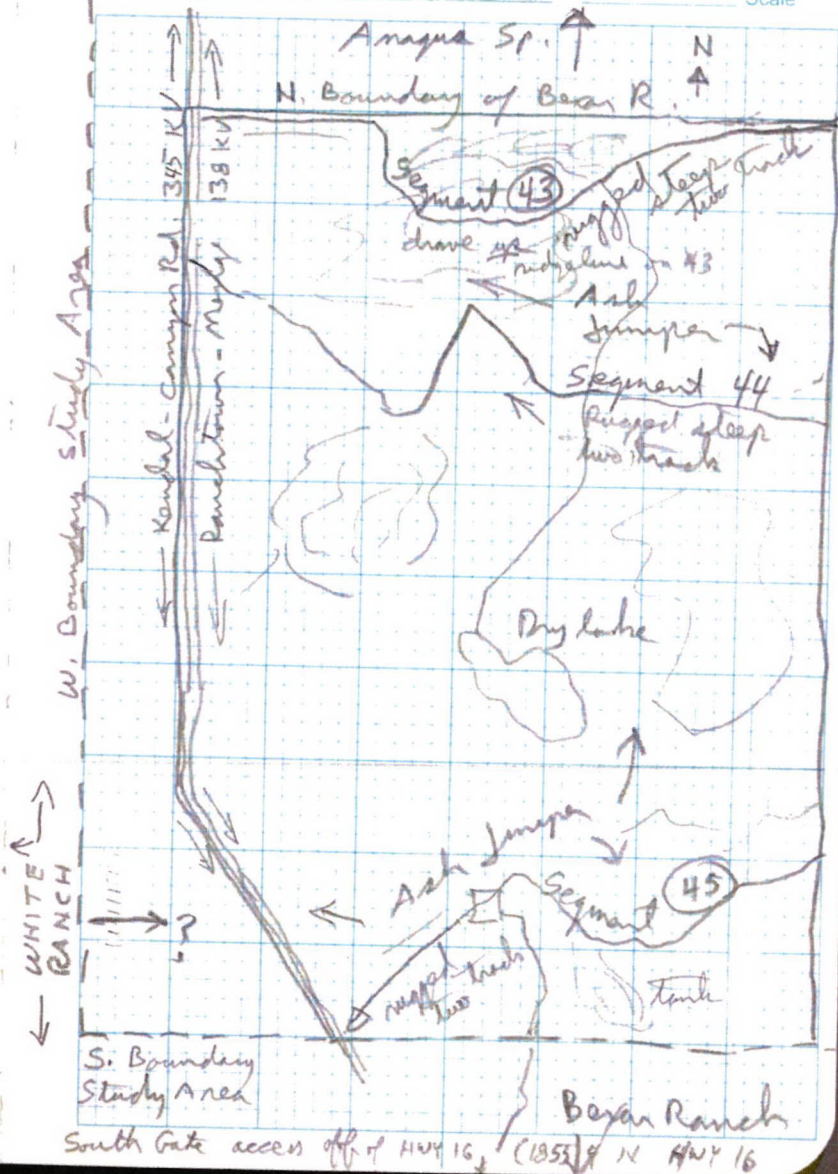 Scale
Anaqua Sp.
N
N. Boundary of Bexar R.
Kendal-Canyon Rd. 345 KV
Ranchtown-Menge 138 KV
W. Boundary Study Area
Segment 43
rugged steep
two track
drove up
ridgeline on 43
Ash
Juniper
Segment 44
Rugged steep
two track
Dry lake
Ash Juniper
WHITE
RANCH
?
Segment 45
rugged
two track
Tank
S. Boundary
Study Area
Bexar Ranch
South Gate access off of HWY 16, N HWY 16